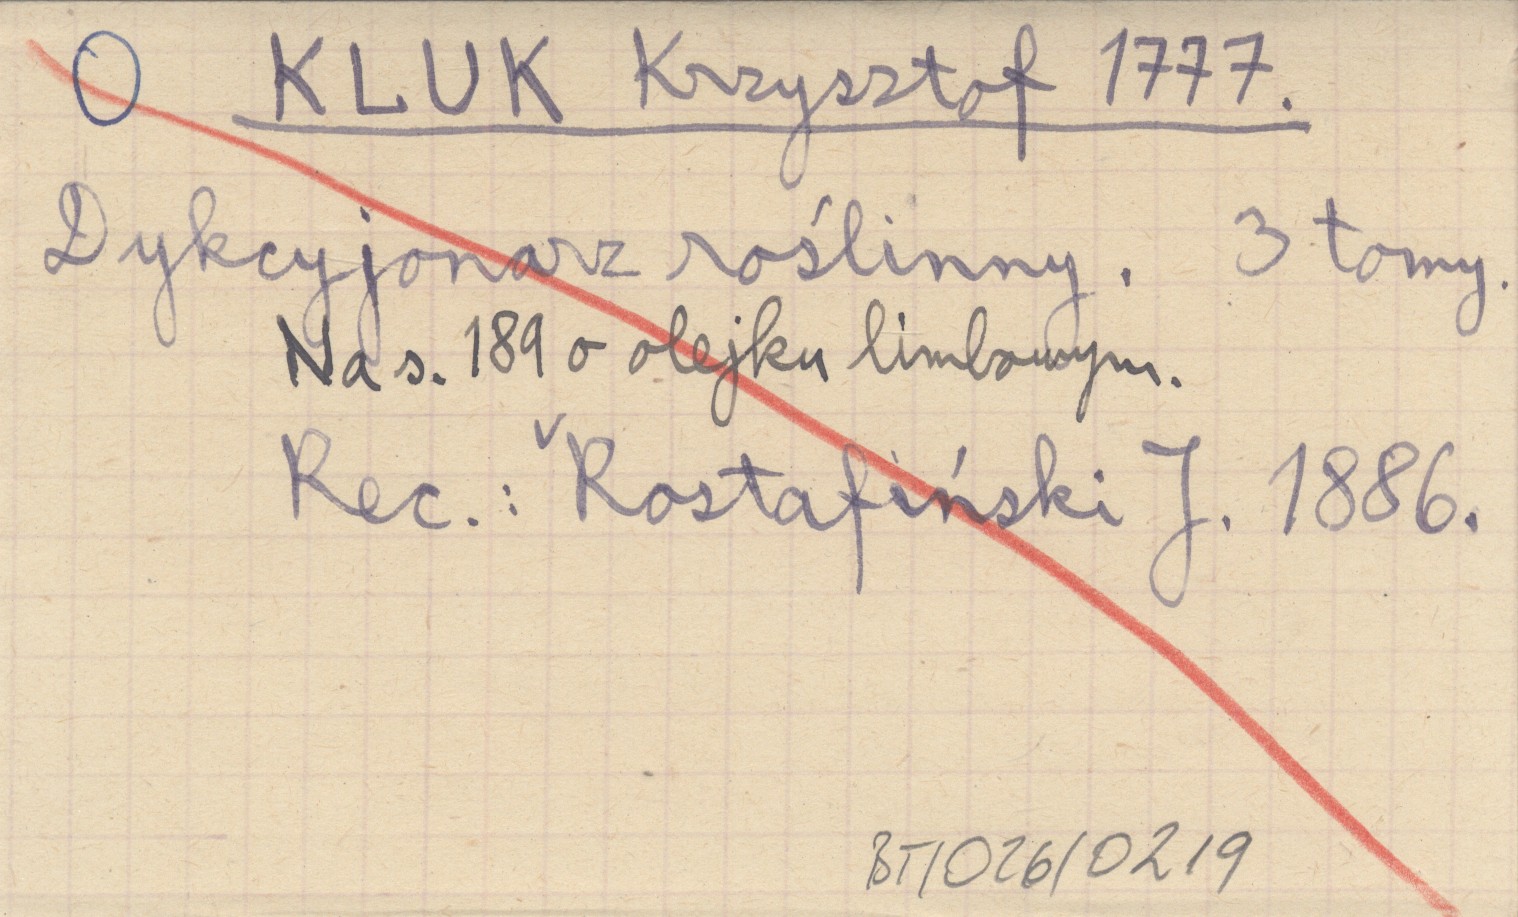 O KLUK Krzysztof 1777.
Dykcyjonarz roślinny. 3 tomy.
Na s. 189 o olejku limbowym.
Rec.: Rostafiński J. 1886.
BT/026/0219